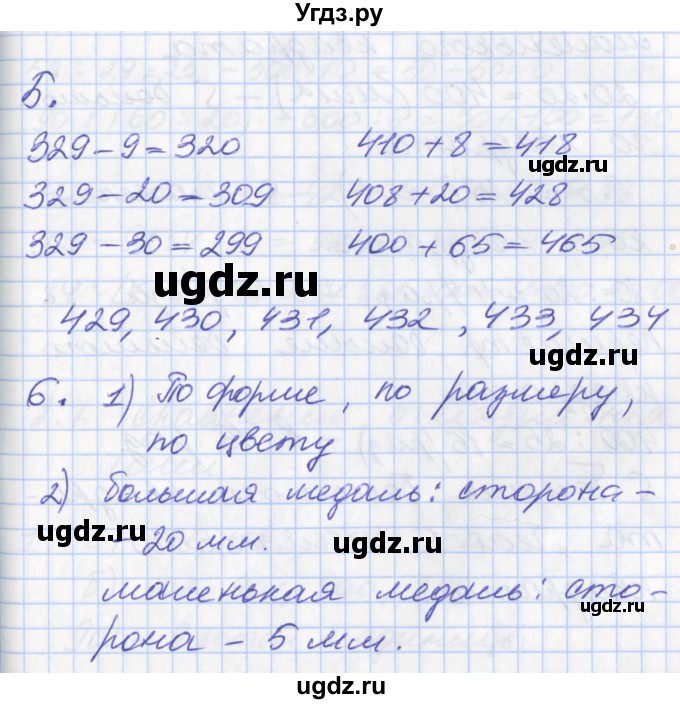 Угдз.ру
Б.
329 - 9 = 320 410 + 8 = 418
ugdz.ru
329 - 20 = 309 408 + 20 = 428
329 - 30 = 299 400 + 65 = 465
ugdz.ru
ugdz.ru
429, 430, 431, 432, 433, 434
6. 1) По форме, по размеру,
по цвету
ugdz.ru
2) большая медаль: сторона -
ugdz.ru
- 20 мм.
ugdz.ru
маленькая медаль: сто-
ugdz.ru
рона - 5 мм.
ugdz.ru
ugdz.ru